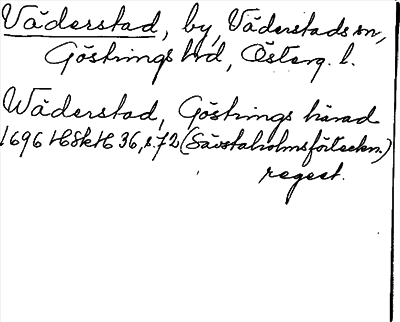 Väderstad, by, Väderstads sn,
Göstrings hd, Österg. l.
Wäderstad, Göstrings härad
1696 HSkH 36, s. 72 (Sävstaholmsförteckn.)
regest.